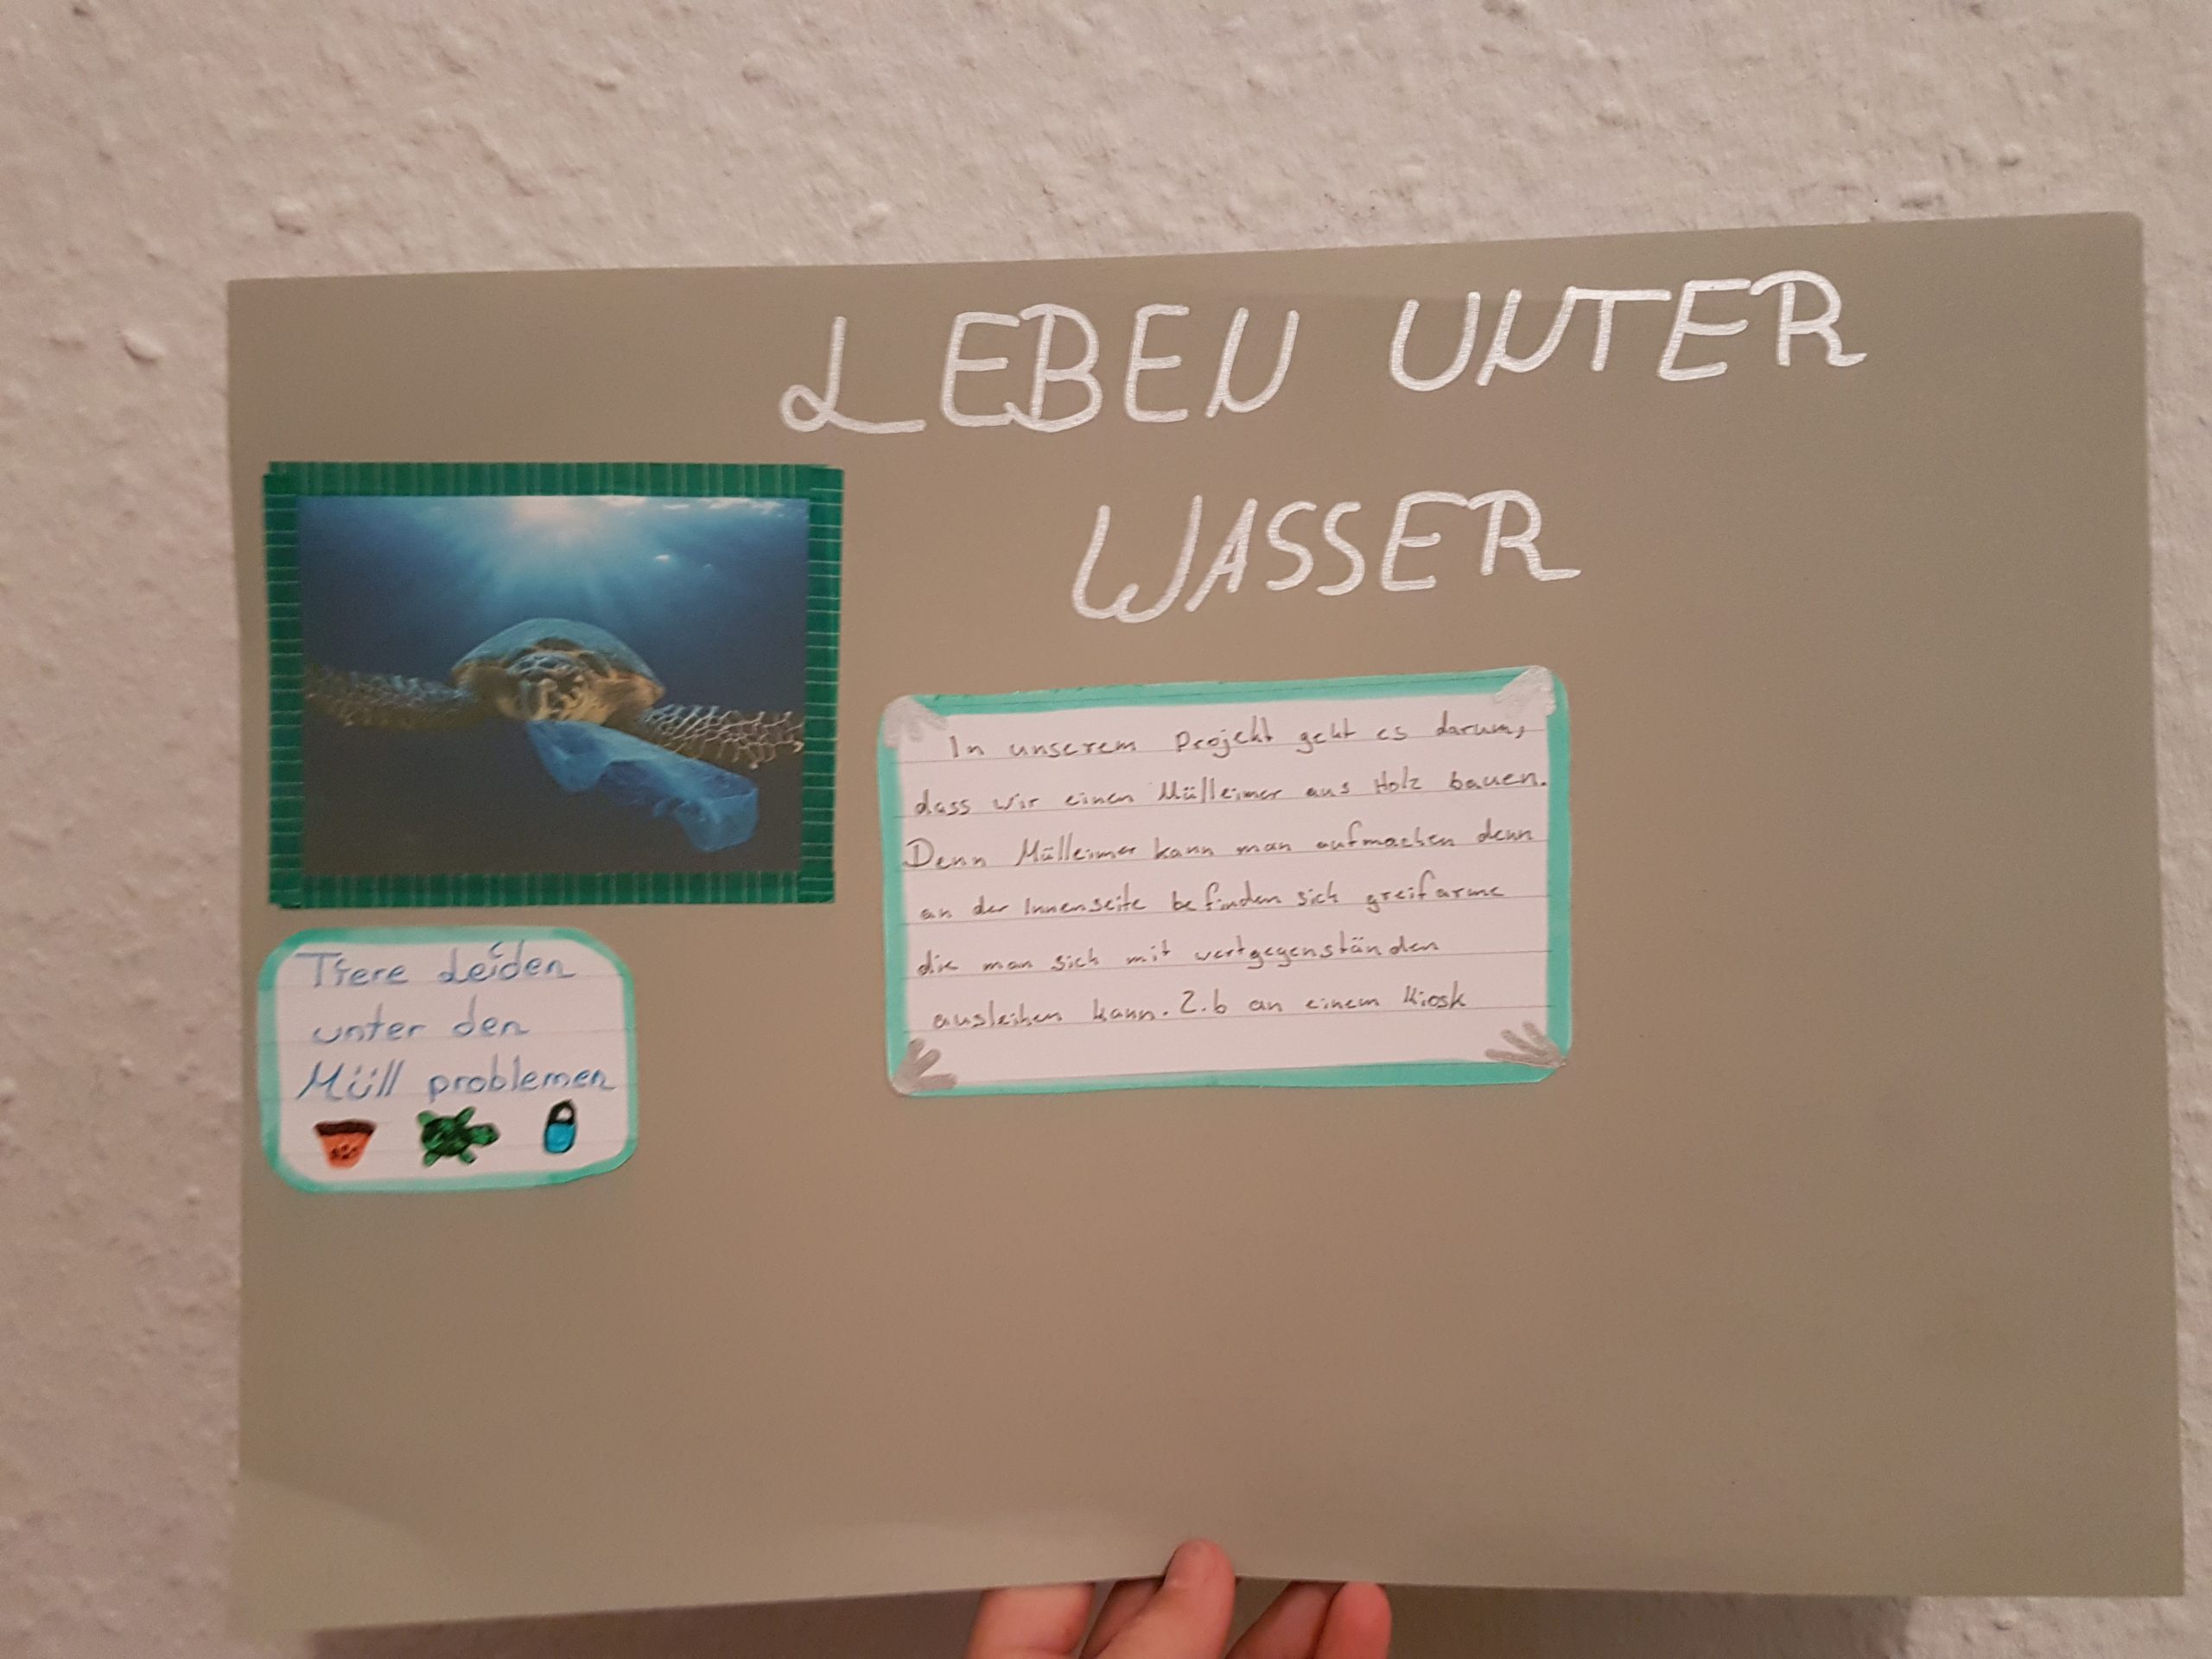 LEBEN UNTER
WASSER
In unserem Projekt geht es darum,
dass wir einen Mülleimer aus Holz bauen.
Denn Mülleimer kann man aufmachen denn
an der Innenseite befinden sich greifarme
die man sich mit wertgegenständen
ausleihen kann. Z.b an einem Kiosk
Tiere Leiden
unter den
Müll problemen